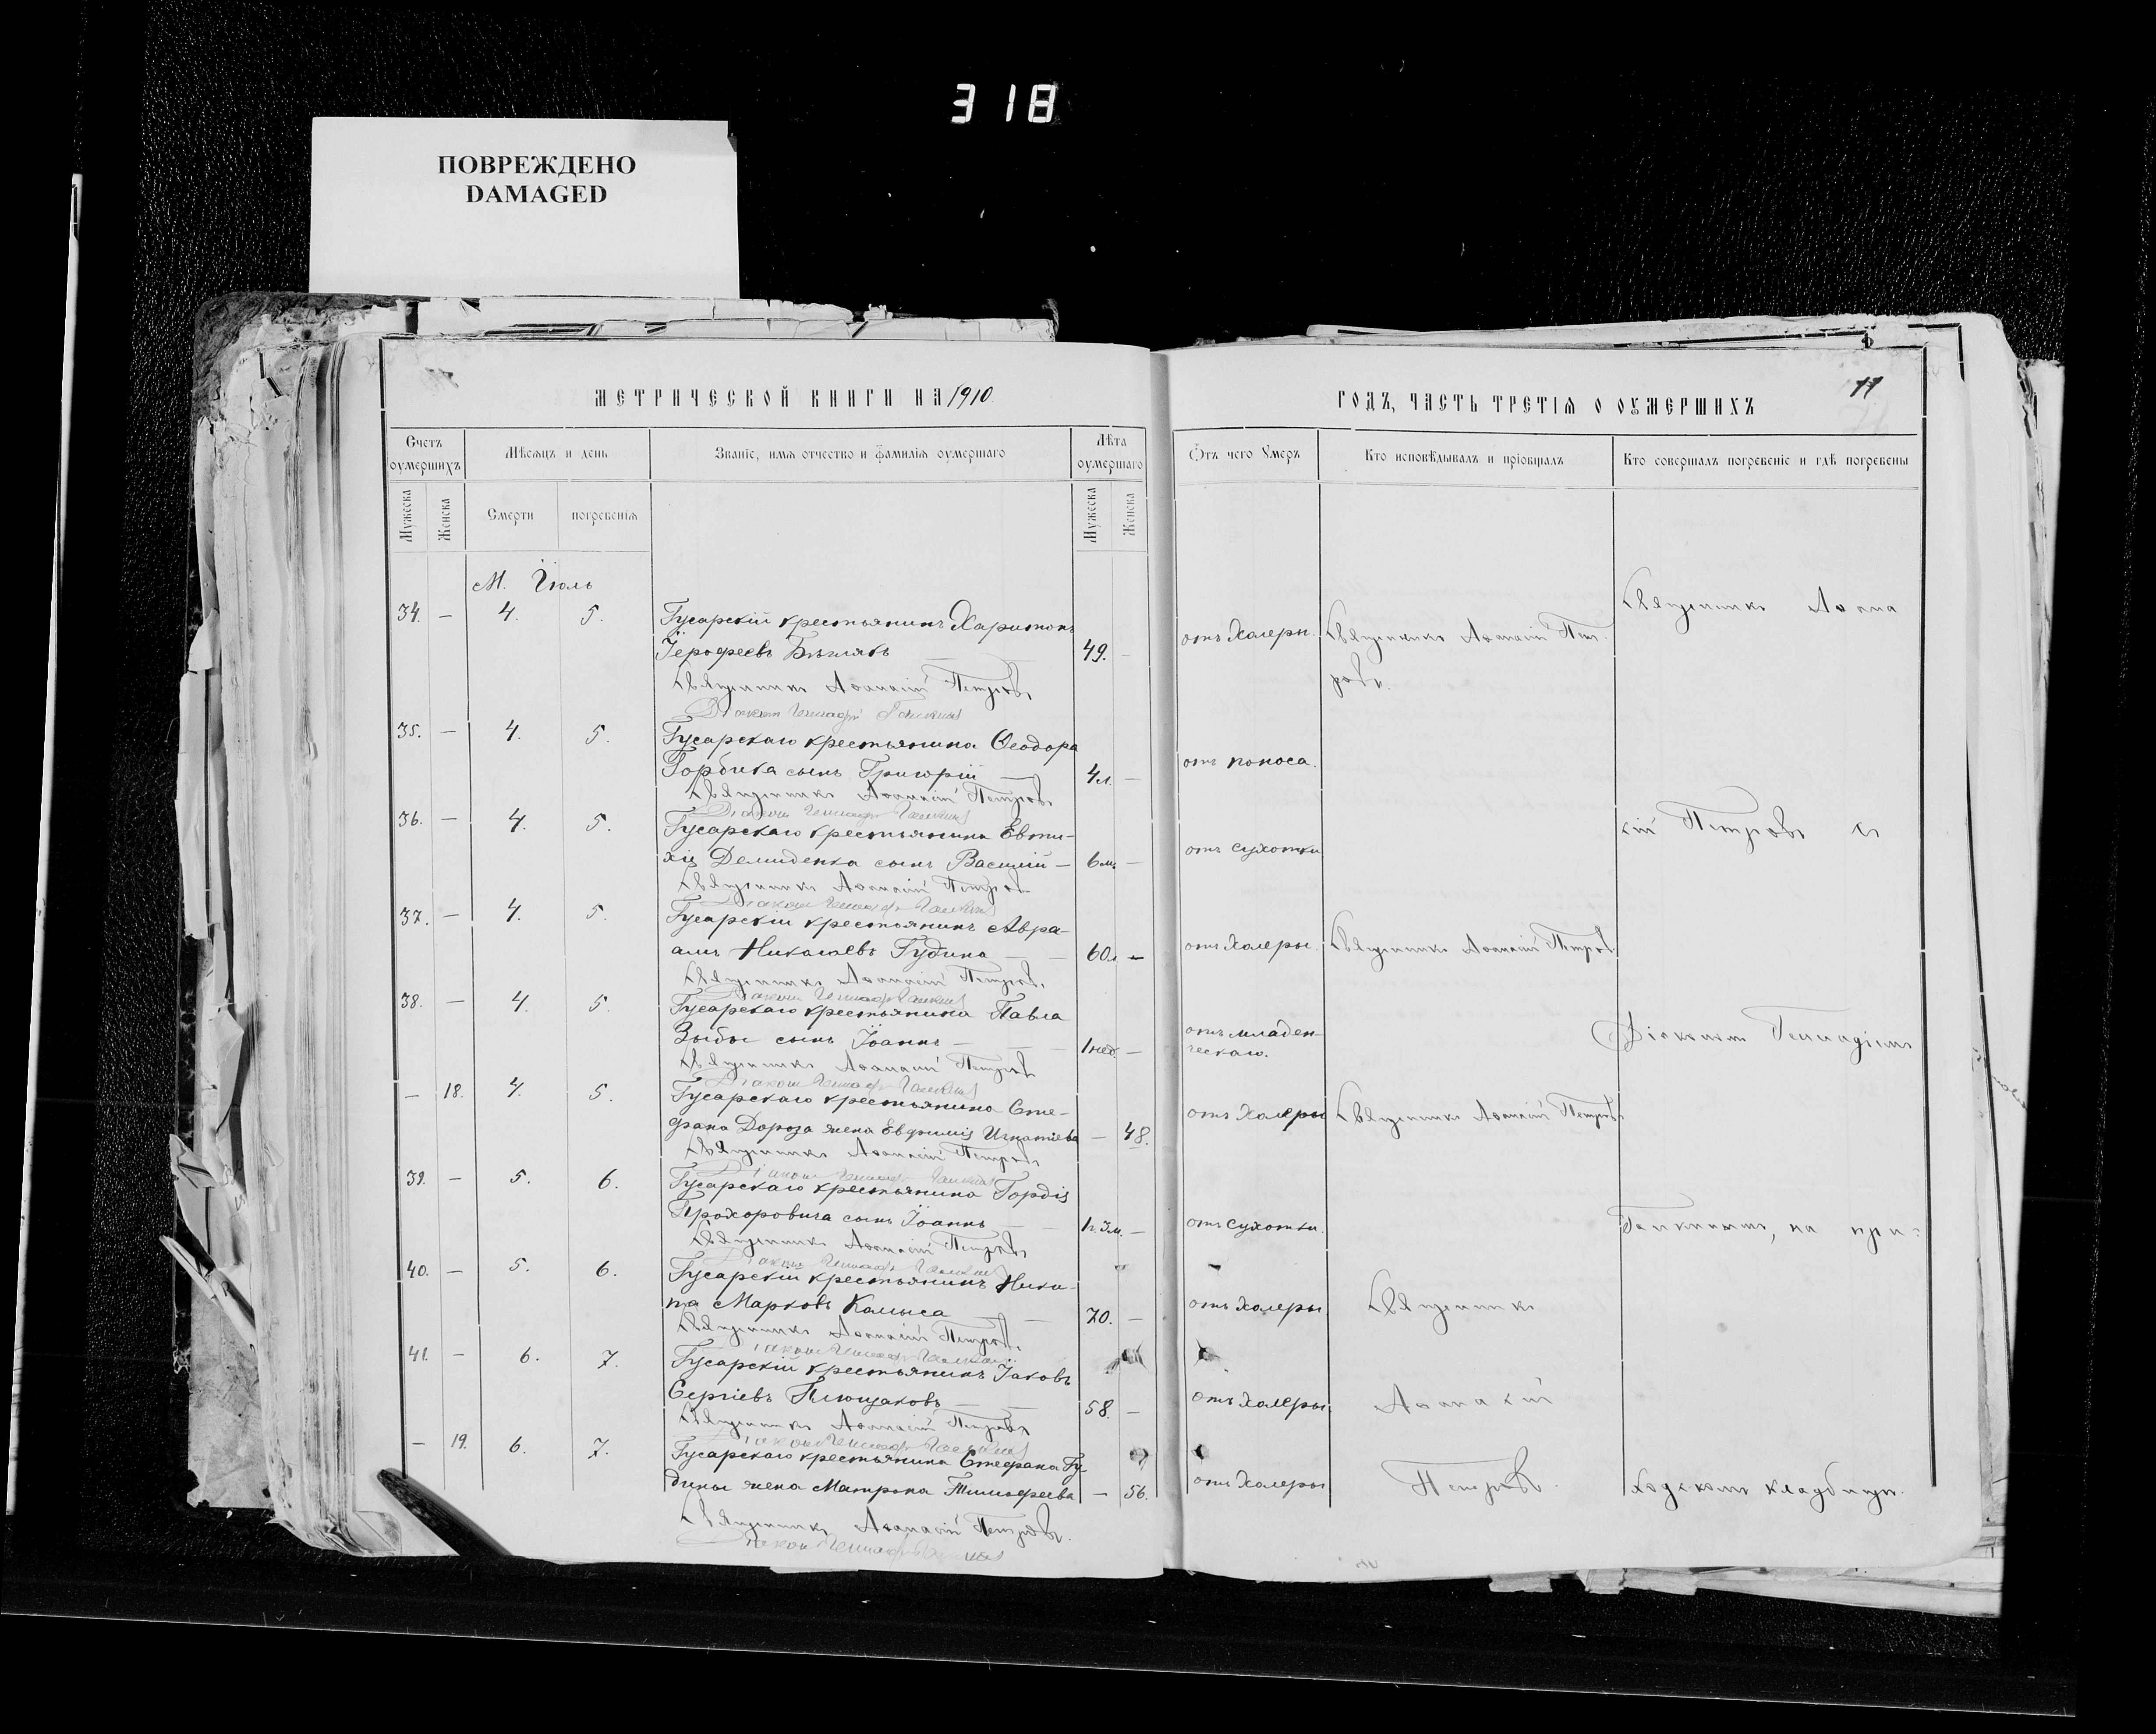 318
ПОВРЕЖДЕНО
DAMAGED
МЕТРИЧЕСКОЙ КНИГИ НА 1910
ГОДЪ, ЧАСТЬ ТРЕТІЯ О ОУМЕРШИХЪ
11
Счетъ оумершихъ
Мѣсяцъ и день
Званіе, имя отчество и фамилія оумершаго
Лѣта оумершаго
Отъ чего Умеръ
Кто исповѣдывалъ и пріобщалъ
Кто совершалъ погребеніе и гдѣ погребены
Мужеска
Женска
Смерти
погребенія
Мужеска
Женска
М. Іюль
34. — 4. 5. Гусарскій крестьянинъ Харитонъ
Іерофеевъ 49. — отъ Холеры. Священникъ Аѳанасій Пет-
ровъ.
Священникъ Аѳанасій Петровъ
Діаконъ Геннадій Галкинъ
35. — 4. 5. Гусарскаго крестьянина Ѳеодора
Горбика сынъ Григорій — 4л. — отъ поноса.
Священникъ Аѳанасій Петровъ
Діаконъ Геннадій Галкинъ
36. — 4. 5. Гусарскаго крестьянина Евти-
хія Демиденка сынъ Василій — 6м. — отъ сухотки
Священникъ Аѳанасій Петровъ
Діаконъ Геннадій Галкинъ
37. — 4. 5. Гусарскій крестьянинъ Авра-
амъ Николаевъ Гудина — 60л. — отъ Холеры. Священникъ Аѳанасій Петровъ
Священникъ Аѳанасій Петровъ.
Діаконъ Геннадій Галкинъ
38. — 4. 5. Гусарскаго крестьянина Павла
Зыбы сынъ Іоаннъ — 1нед. — отъ младен-
ческаго.
Священникъ Аѳанасій Петровъ
Діаконъ Геннадій Галкинъ
— 18. 4. 5. Гусарскаго крестьянина Сте-
фана Дороза жена Евфимія Игнатіева — 48. отъ Холеры Священникъ Аѳанасій Петровъ
Священникъ Аѳанасій Петровъ
Діаконъ Геннадій Галкинъ
39. — 5. 6. Гусарскаго крестьянина Гордія
Прохоровича сынъ Іоаннъ — 1г. 3м. — отъ сухотки.
Священникъ Аѳанасій Петровъ
Діаконъ Геннадій Галкинъ
40. — 5. 6. Гусарскій крестьянинъ Ники-
та Марковъ Камыса — 70. — отъ Холеры Священникъ
Священникъ Аѳанасій Петровъ.
Діаконъ Геннадій Галкинъ
41. — 6. 7. Гусарскій крестьянинъ Іаковъ
Сергіевъ Плющаковъ — 58. — отъ Холеры. Аѳанасій
Священникъ Аѳанасій Петровъ
Діаконъ Геннадій Галкинъ
— 19. 6. 7. Гусарскаго крестьянина Стефана Гу-
дины жена Матрона Тимофеева — 56. отъ Холеры Петровъ.
Священникъ Аѳанасій Петровъ.
Діаконъ Геннадій Галкинъ
Священникъ Аѳана
сій Петровъ съ
Діакономъ Геннадіемъ
Галкинымъ, на при-
ходскомъ кладбищѣ.